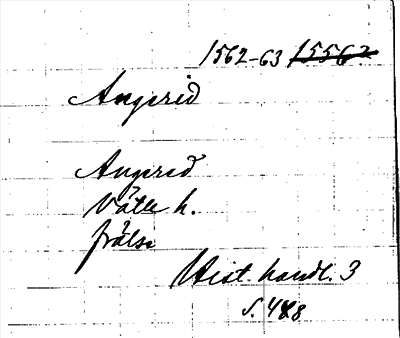 1562-63 15562
Angerid
Angerid
Vätle h.
frälse
Hist. handl. 3
s. 488